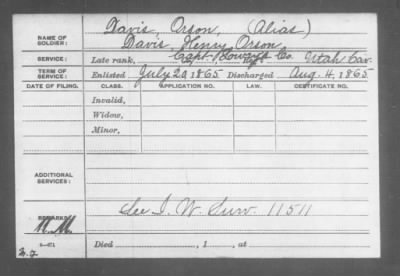 NAME OF SOLDIER: Davis, Orson, (Alias)
Davis, Henry Orson
SERVICE: Late rank, Capt. Lowry's Co. Utah Cav.
TERM OF SERVICE: Enlisted July 20, 1865 Discharged Aug. 4, 1865
DATE OF FILING. CLASS. APPLICATION NO. LAW. CERTIFICATE NO.
Invalid,
Widow,
Minor,
ADDITIONAL SERVICES:
See I. W. Surv. 11511
REMARKS:
Died , 1 , at